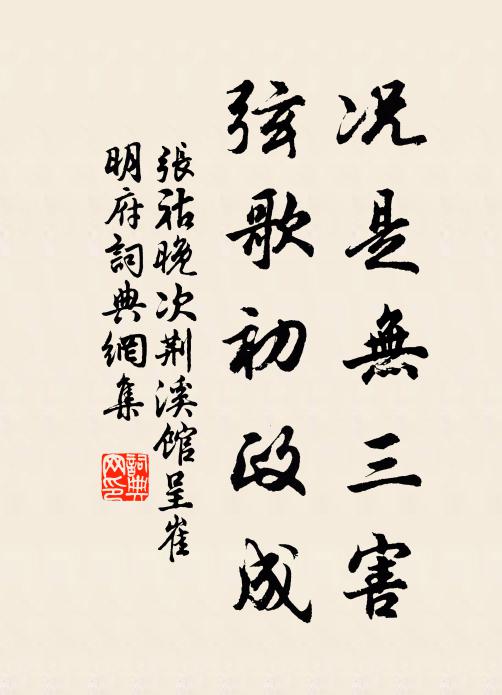 况是無三害
弦歌初政成
張祜晚次荆溪馆呈崔
明府詞典網集
詞典网印